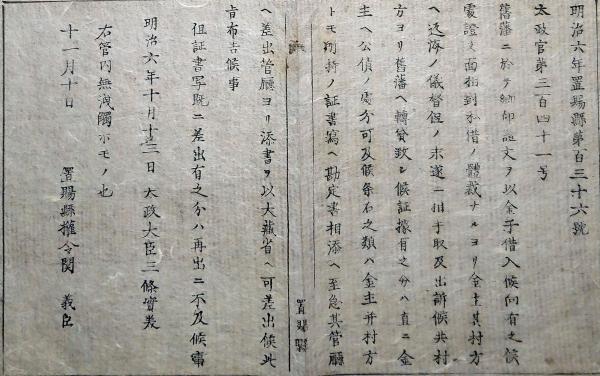 明治六年置賜縣第百三十六號
太政官第三百四十一号
舊藩ニ於テ納印證文ヲ以金子借入候向有之候
處證文面相對私借ノ體裁ナルヨリ金主其村方
ヘ返済ノ儀督促ノ末遂ニ相手取及出訴候共村
方ヨリ舊藩ヘ轉貸致シ候証據有之分ハ直ニ金
主ヘ公債ノ處分可及候条右之類ハ金主并村方
トモ所持ノ証書寫ヘ勘定書相添ヘ至急其管廳
置賜縣
ヘ差出管廳ヨリ添書ヲ以大蔵省ヘ可差出候此
旨布告候事
但証書写既ニ差出有之分ハ再出ニ不及候事
明治六年十月十三日 太政大臣三條實美
右管内無洩觸示モノ也
十一月十日 置賜縣權令関 義臣